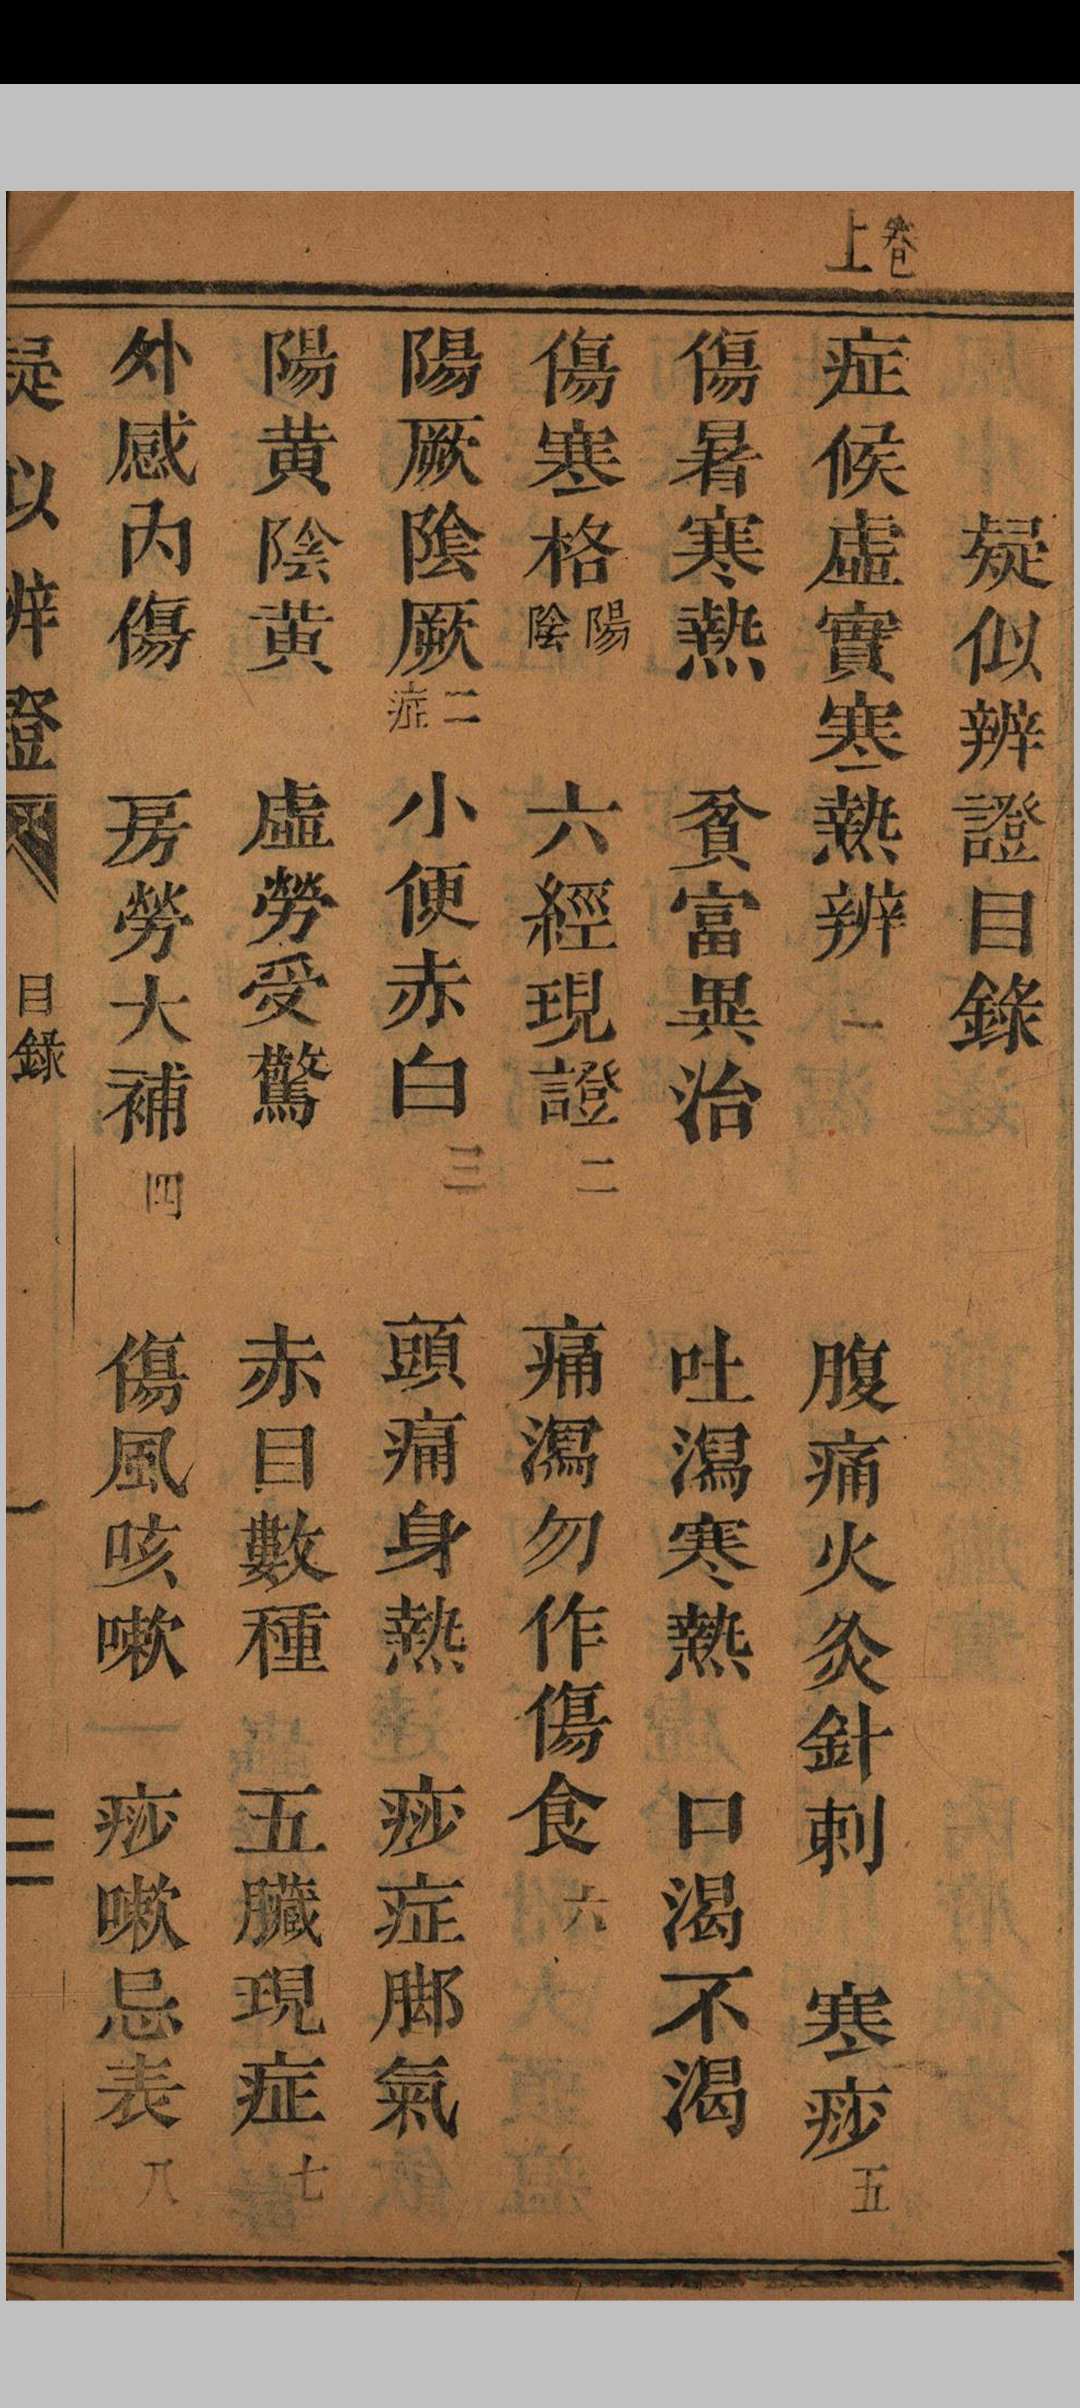 卷上
疑似辨證目錄
症候虛實寒熱辨 一 腹痛火灸針刺 寒痧 五
傷暑寒熱 貧富異治 吐瀉寒熱 口渴不渴
傷寒格陽陰 六經現證 二 痛瀉勿作傷食 六
陽厥陰厥二症 小便赤白 三 頭痛身熱 痧症脚氣
陽黃陰黃 虛勞受驚 赤目數種 五臟現症 七
外感內傷 房勞大補 四 傷風咳嗽 痧嗽忌表 八
疑似辨證 目錄 一